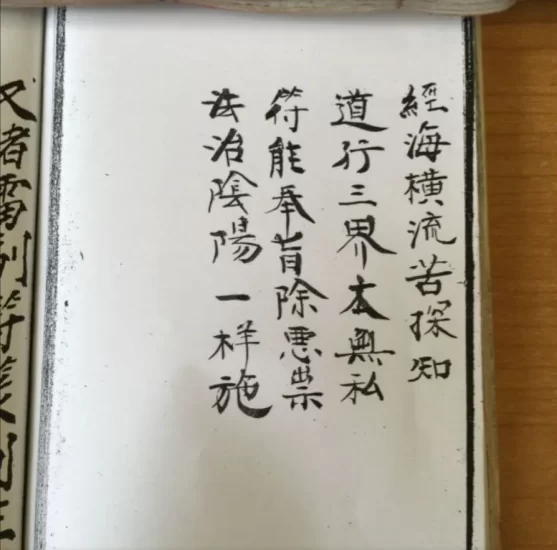 經海横流苦探知
道行三界本無私
符能奉旨除悪祟
法治陰陽一样施